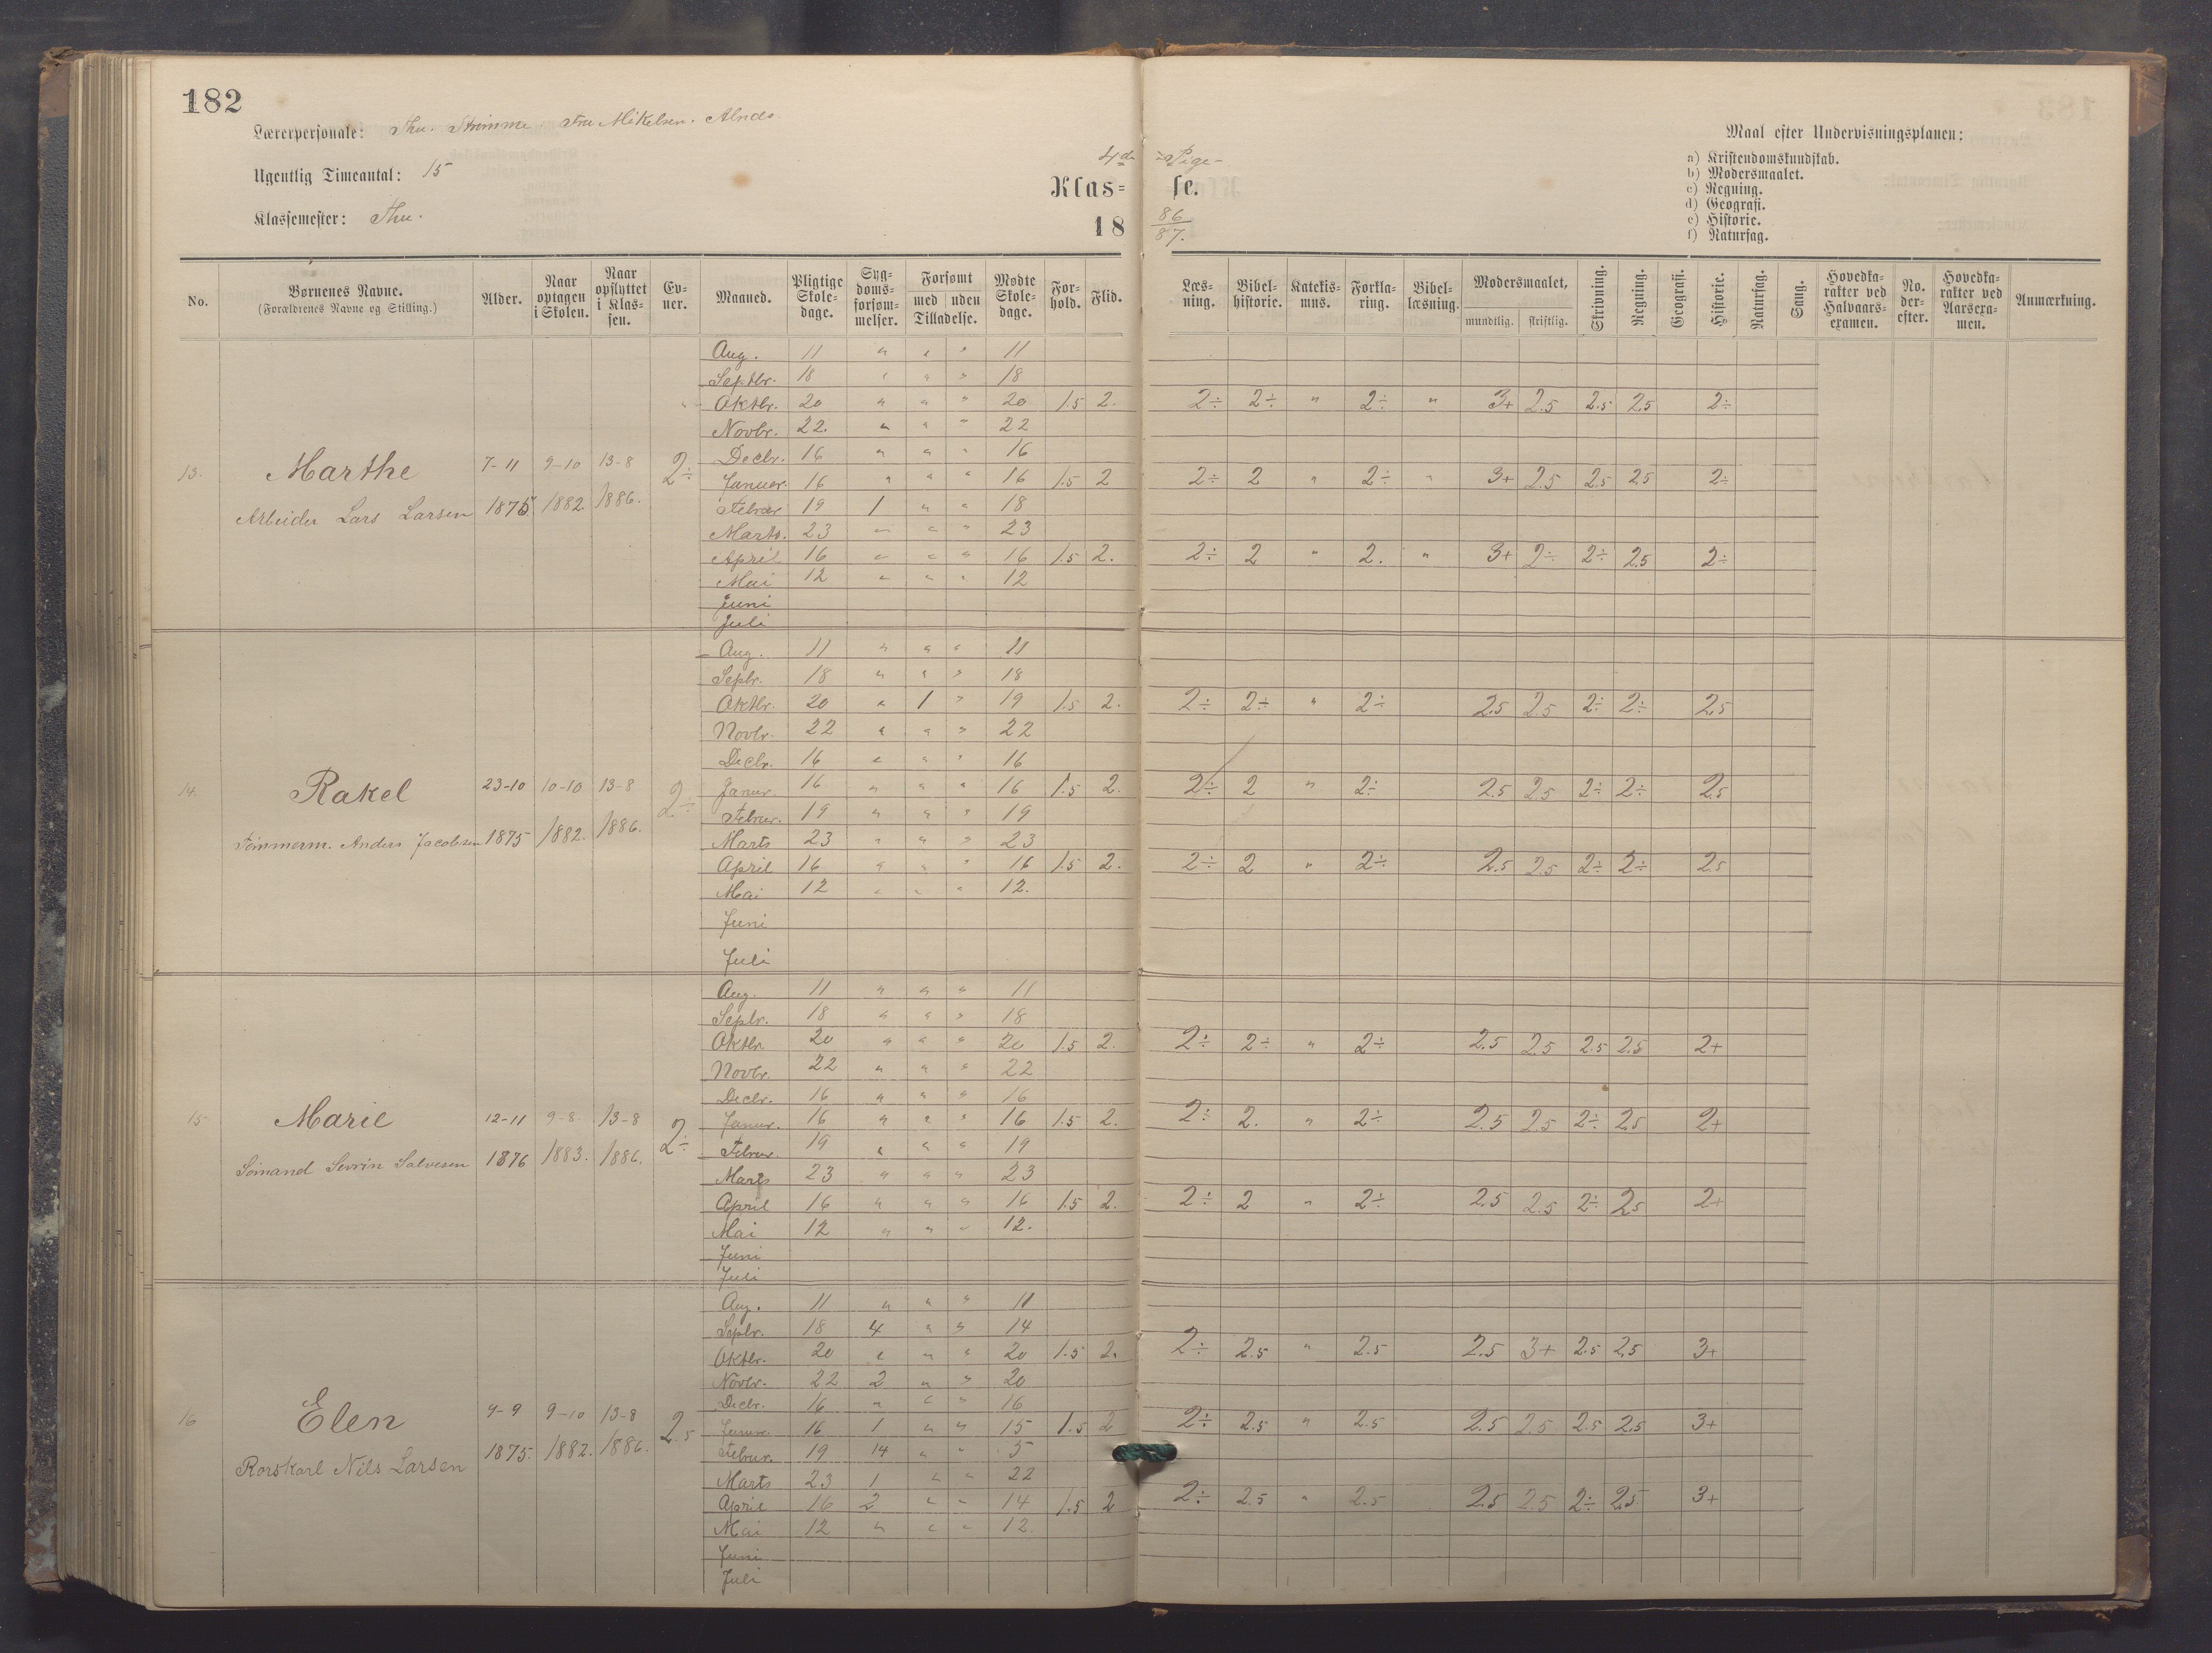 182
Lærerpersonale: Thu. Strømme Fru Mikelsen.
Ugentlig Timeantal: 15
Klassemester: Thu.
4de Pige-
Klas= se.
18 86/87.
Maal efter Undervisningsplanen:
a) Kristendomskundskab.
b) Modersmaalet.
c) Regning.
d) Geografi.
e) Historie.
f) Naturfag.
No. Børnenes Navne. (Forældrenes Navne og Stilling.) Alder. Naar optagen i Skolen. Naar opflyttet i Klas-sen. Ev-ner. Maaned. Pligtige Skole-dage. Syg-doms-forsøm-melser. Forsømt med uden Tilladelse. Mødte Skole-dage. For-hold. Flid. Læs-ning. Bibel-historie. Katekis-mus. Forkla-ring. Bibel-læsning. Modersmaalet, mundtlig. skriftlig. Skrivning. Regning. Geografi. Historie. Naturfag. Sang. Hovedka-rakter ved Halvaars-examen. No. der-efter. Hovedka-rakter ved Aarsexa-men. Anmærkning.
Aug. 11 " " " 11
Septbr. 18 " " " 18
Oktbr. 20 " " " 20 1.5 2. 2÷ 2÷ " 2÷ " 3+ 2.5 2.5 2.5 2÷
Novbr. 22. " " " 22
Decbr. 16 " " " 16
13. Marthe 7-11 9-10 13-8 2÷
Januar. 16 " " " 16 1.5 2 2÷ 2 " 2÷ " 3+ 2.5 2.5 2.5 2÷
Arbeider Lars Larsen 1875. 1882. 1886.
Februar 19 1 " " 18
Marts. 23 " " " 23
April 16 " " " 16 1.5 2. 2÷ 2 " 2. " 3+ 2÷ 2÷ 2.5 2÷
Mai 12 " " " 12
Juni
Juli
Aug. 11 " " " 11
Sepbr. 18 " " " 18
Oktbr. 20 " 1 " 19 1.5 2. 2÷ 2÷ " 2÷ 2.5 2.5 2÷ 2÷ 2.5
Novbr. 22 " " " 22
Decbr. 16 " " " 16
14. Rakel 23-10 10-10 13-8 2÷
Januar. 16 " " " 16 1.5 2. 2÷ 2 " 2÷ 2.5 2.5 2÷ 2÷ 2.5
Februar. 19 " " " 19
Tømmerm. Anders Jacobsen 1875 1882. 1886.
Marts 23 " " " 23
April 16 " " " 16 1.5 2. 2÷ 2 " 2÷ 2.5 2.5 2÷ 2÷ 2.5
Mai 12 " " " 12.
Juni
Juli
Aug. 11 " " " 11
Sepbr. 18 " " " 18
Oktbr. 20 " " " 20 1.5 2. 2÷ 2÷ " 2÷ 2.5 2.5 2.5 2.5 2+
Novbr. 22 " " " 22
Decbr. 16 " " " 16
15 Marie 12-11 9-8. 13-8 2÷
Januar. 16 " " " 16 1.5 2. 2÷ 2. " 2÷ 2.5 2.5 2÷ 2.5 2+
Februar. 19 " " " 19
Sømand Sevrin Salvesen 1876 1883. 1886.
Marts 23 " " " 23
April 16 " " " 16 1.5 2. 2÷ 2 " 2÷ 2.5 2.5 2÷ 2.5 2+
Mai 12 " " " 12.
Juni
Juli
Aug. 11 " " " 11
Sepbr. 18 4 " " 14
Oktbr. 20 " " " 20 1.5 2. 2÷ 2.5 " 2.5 2.5 3+ 2.5 2.5 3+
Novbr. 22 2 " " 20
Decbr. 16 " " " 16
16 Elen 9-10 13-8 2.5
Januar. 16 1 " " 15 1.5 2 2÷ 2.5 " 2.5 2.5 2.5 2.5 2.5 3+
Februar. 19 14 " " 5
Rorskarl Nils Larsen 1875. 1882. 1886.
Marts 23 1 " " 22
April 16 2 " " 14 1.5 2 2÷ 2.5 " 2.5 2.5 2.5 2÷ 2.5 3+
Mai 12 " " " 12.
Juni
Juli